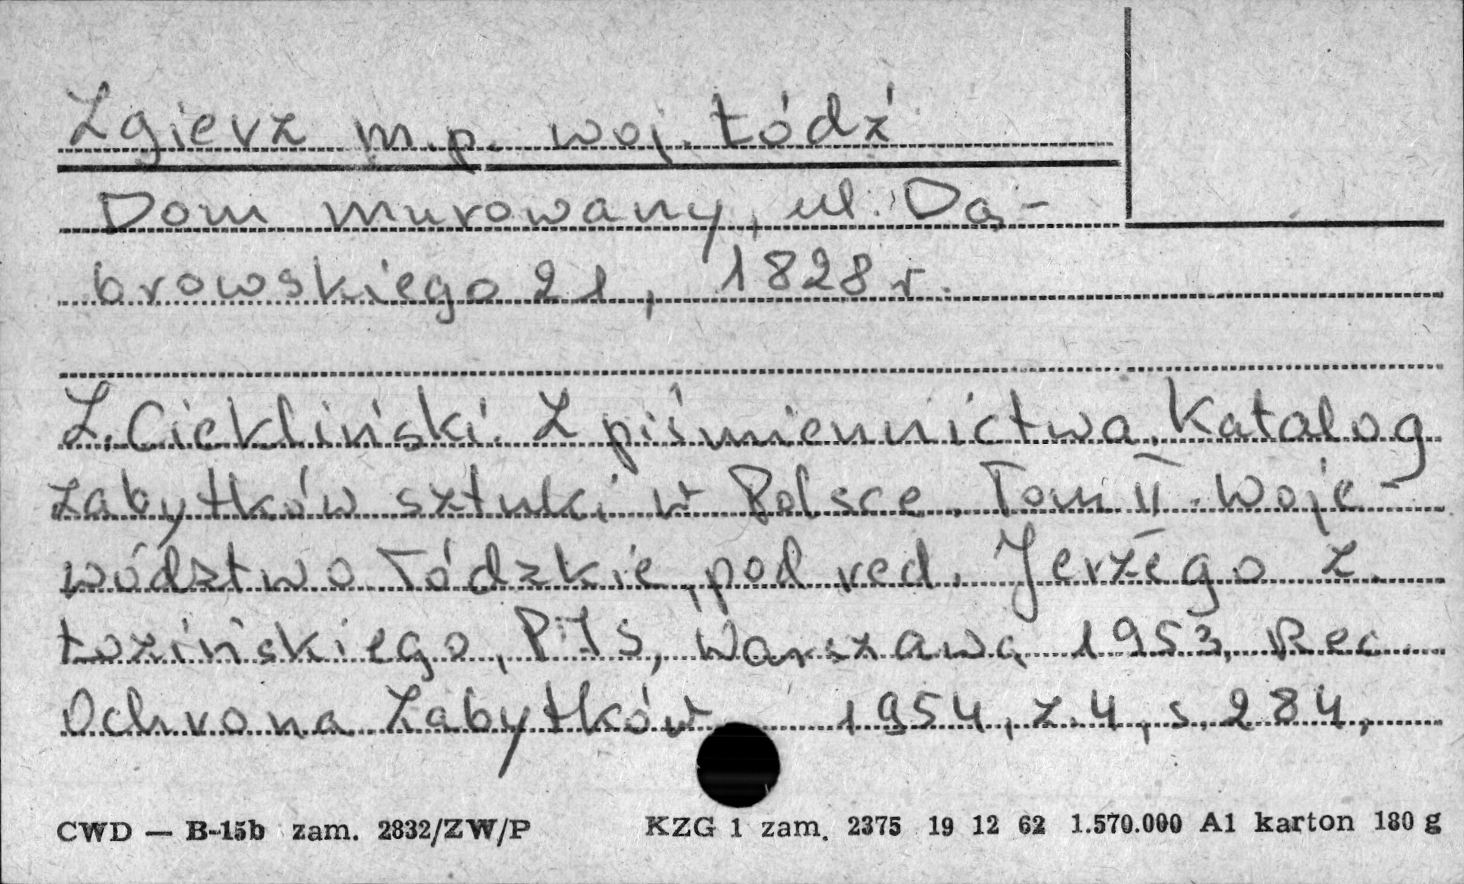 Zgierz m.p. woj. Łódź
Dom murowany, ul. Dą-
browskiego 21, 1828 r.
Z. Ciekliński. Z piśmiennictwa. Katalog
zabytków sztuki w Polsce. Tom II. Woje-
wództwo Łódzkie, pod red. Jerzego Z.
Łozińskiego, PIS, Warszawa 1953, Rec.
Ochrona Zabytków 1954, z. 4, s. 284,
CWD — B-15b zam. 2832/ZW/P KZG 1 zam. 2375 19 12 62 1.570.000 A1 karton 180 g